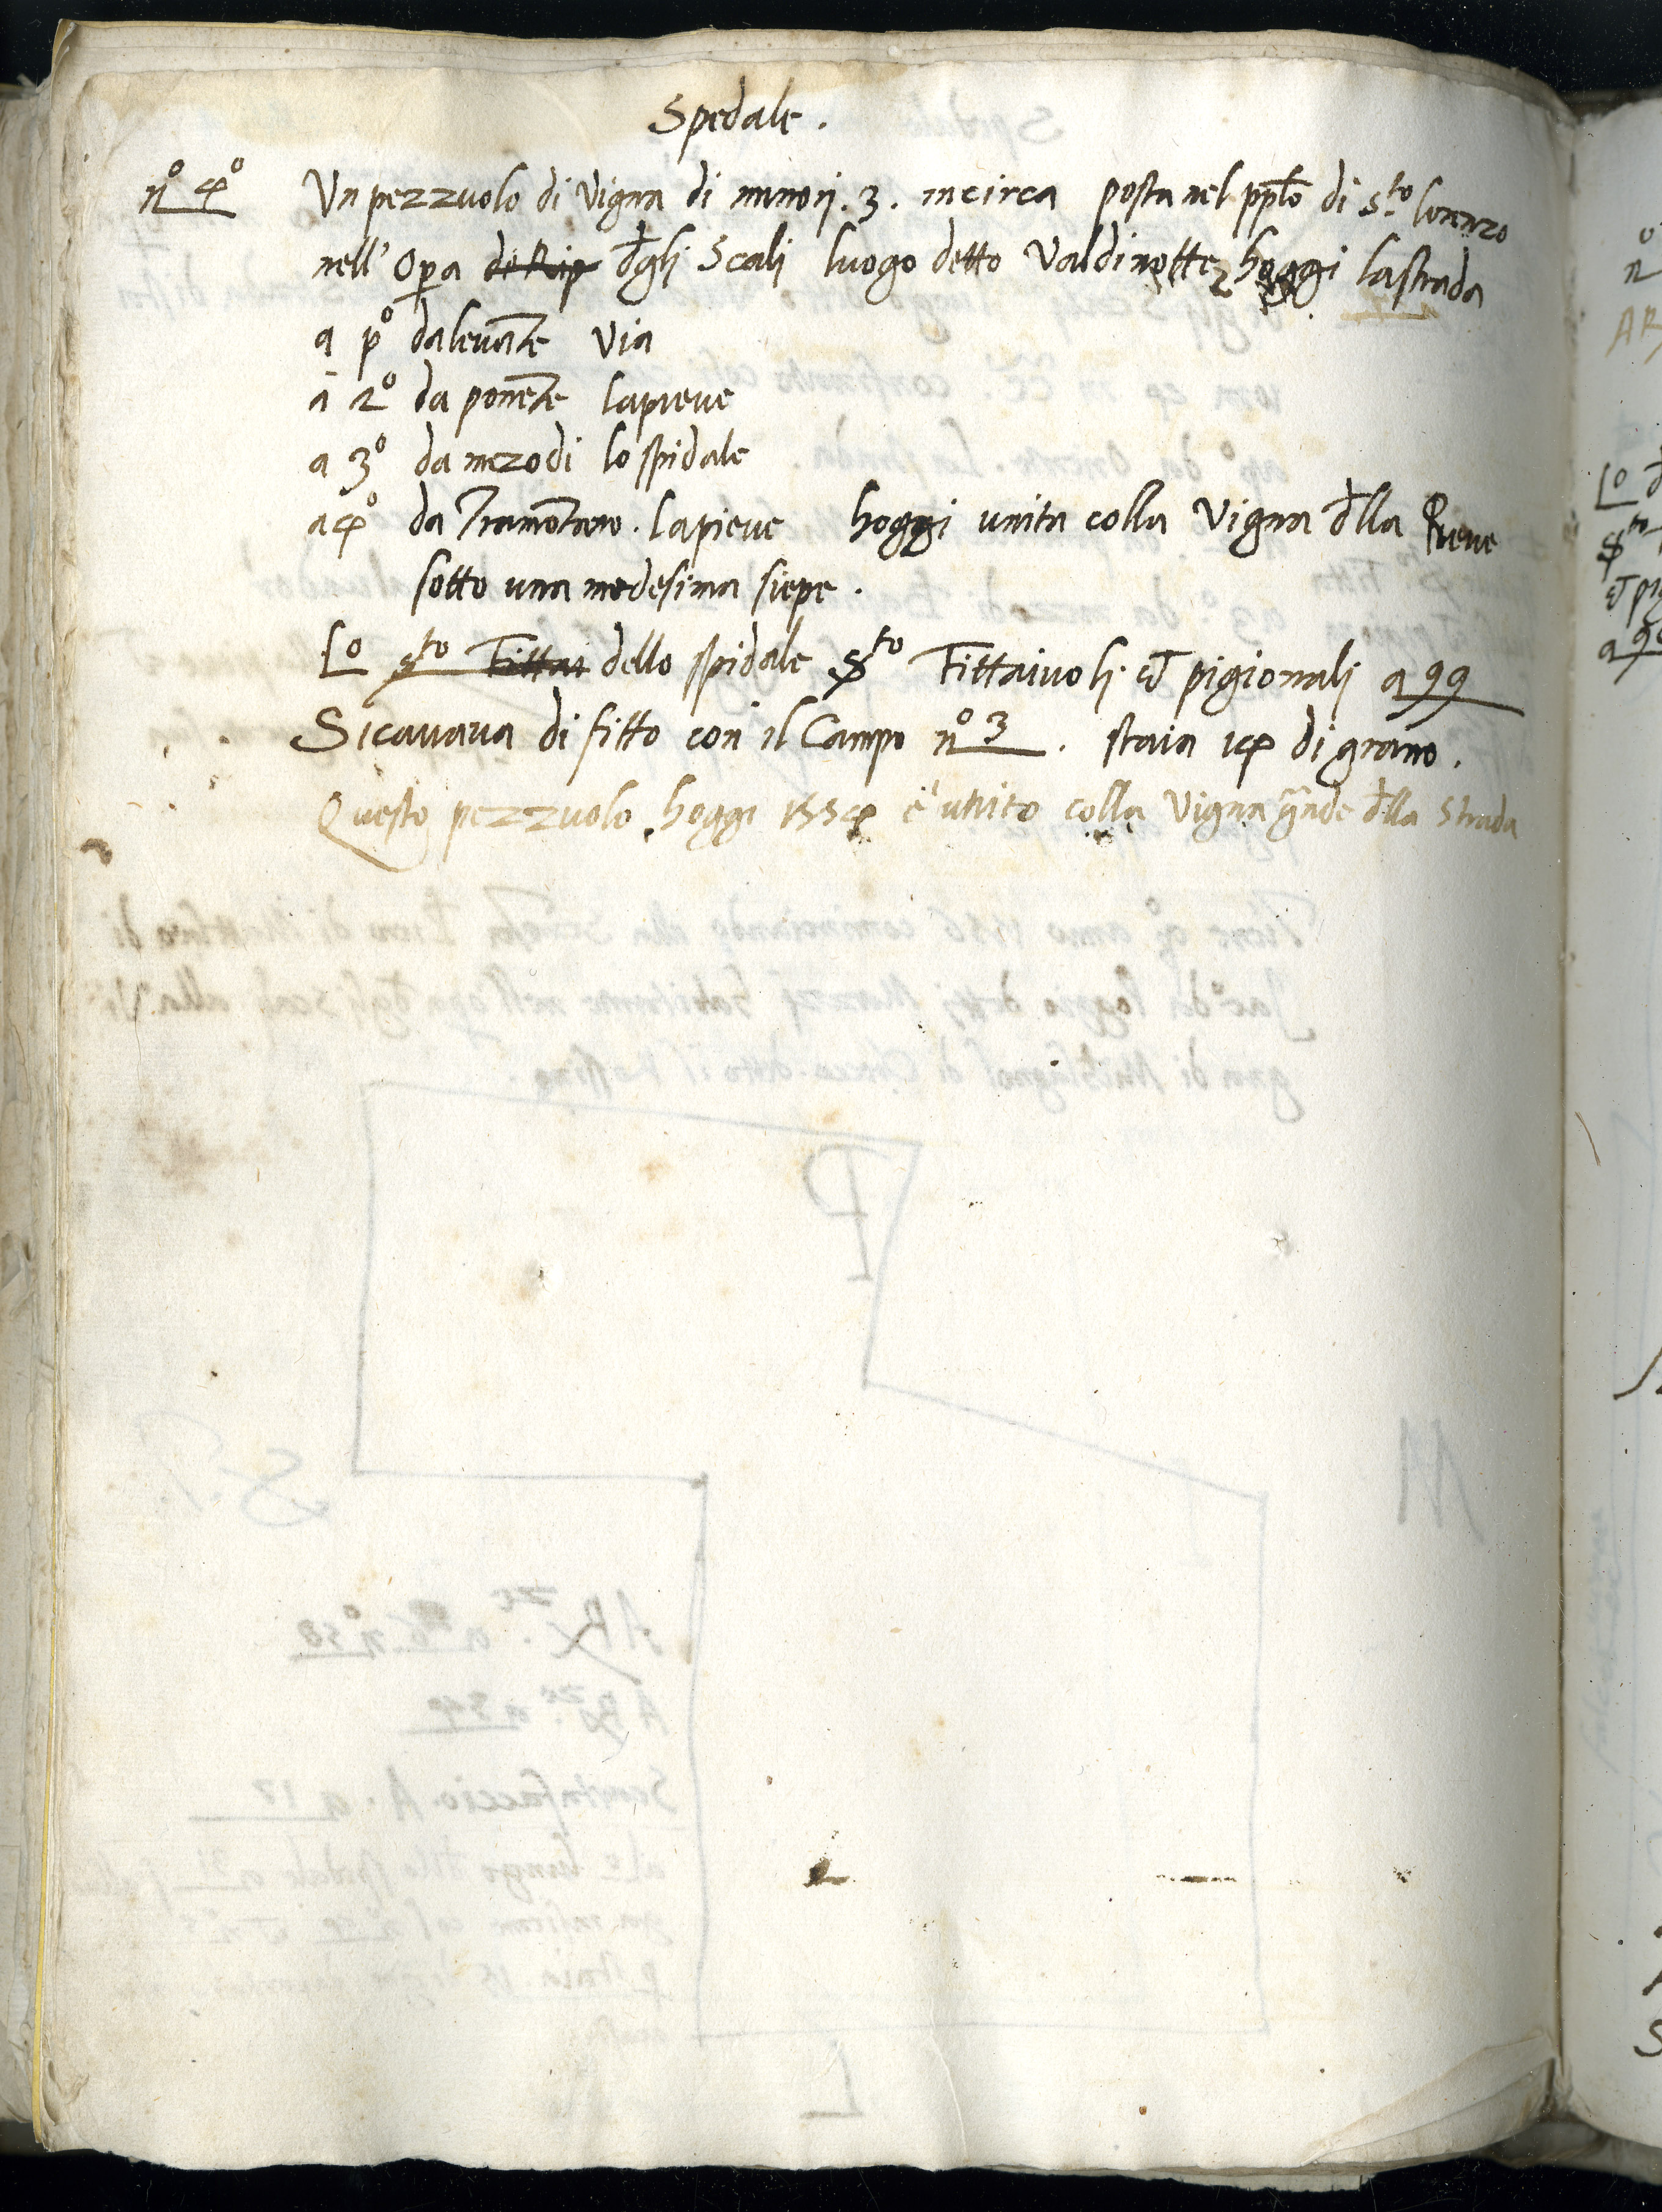 Spedale.
nº 4º Un pezzuolo di vigna di minori .3. incirca posta nel pplo di S.to Lorenzo
nell' Opa de Rip dgli Scali luogo detto Valdinotte hoggi lastrada
a pº dalevate via
a 2º da ponete lapieve
a 3º da mezodi lo spidale
a 4º da Tramotano. lapieve hoggi unita colla vigna dlla Pieve
sotto una medesima siepe.
Lº sto Fittai dello spidale Sto Fittaivoli et pigionali a 99
Sicavava di fitto con il Campo nº 3. staia 14 di grano.
Questo pezzuolo hoggi 1554 è unito colla vigna grade dlla Strada